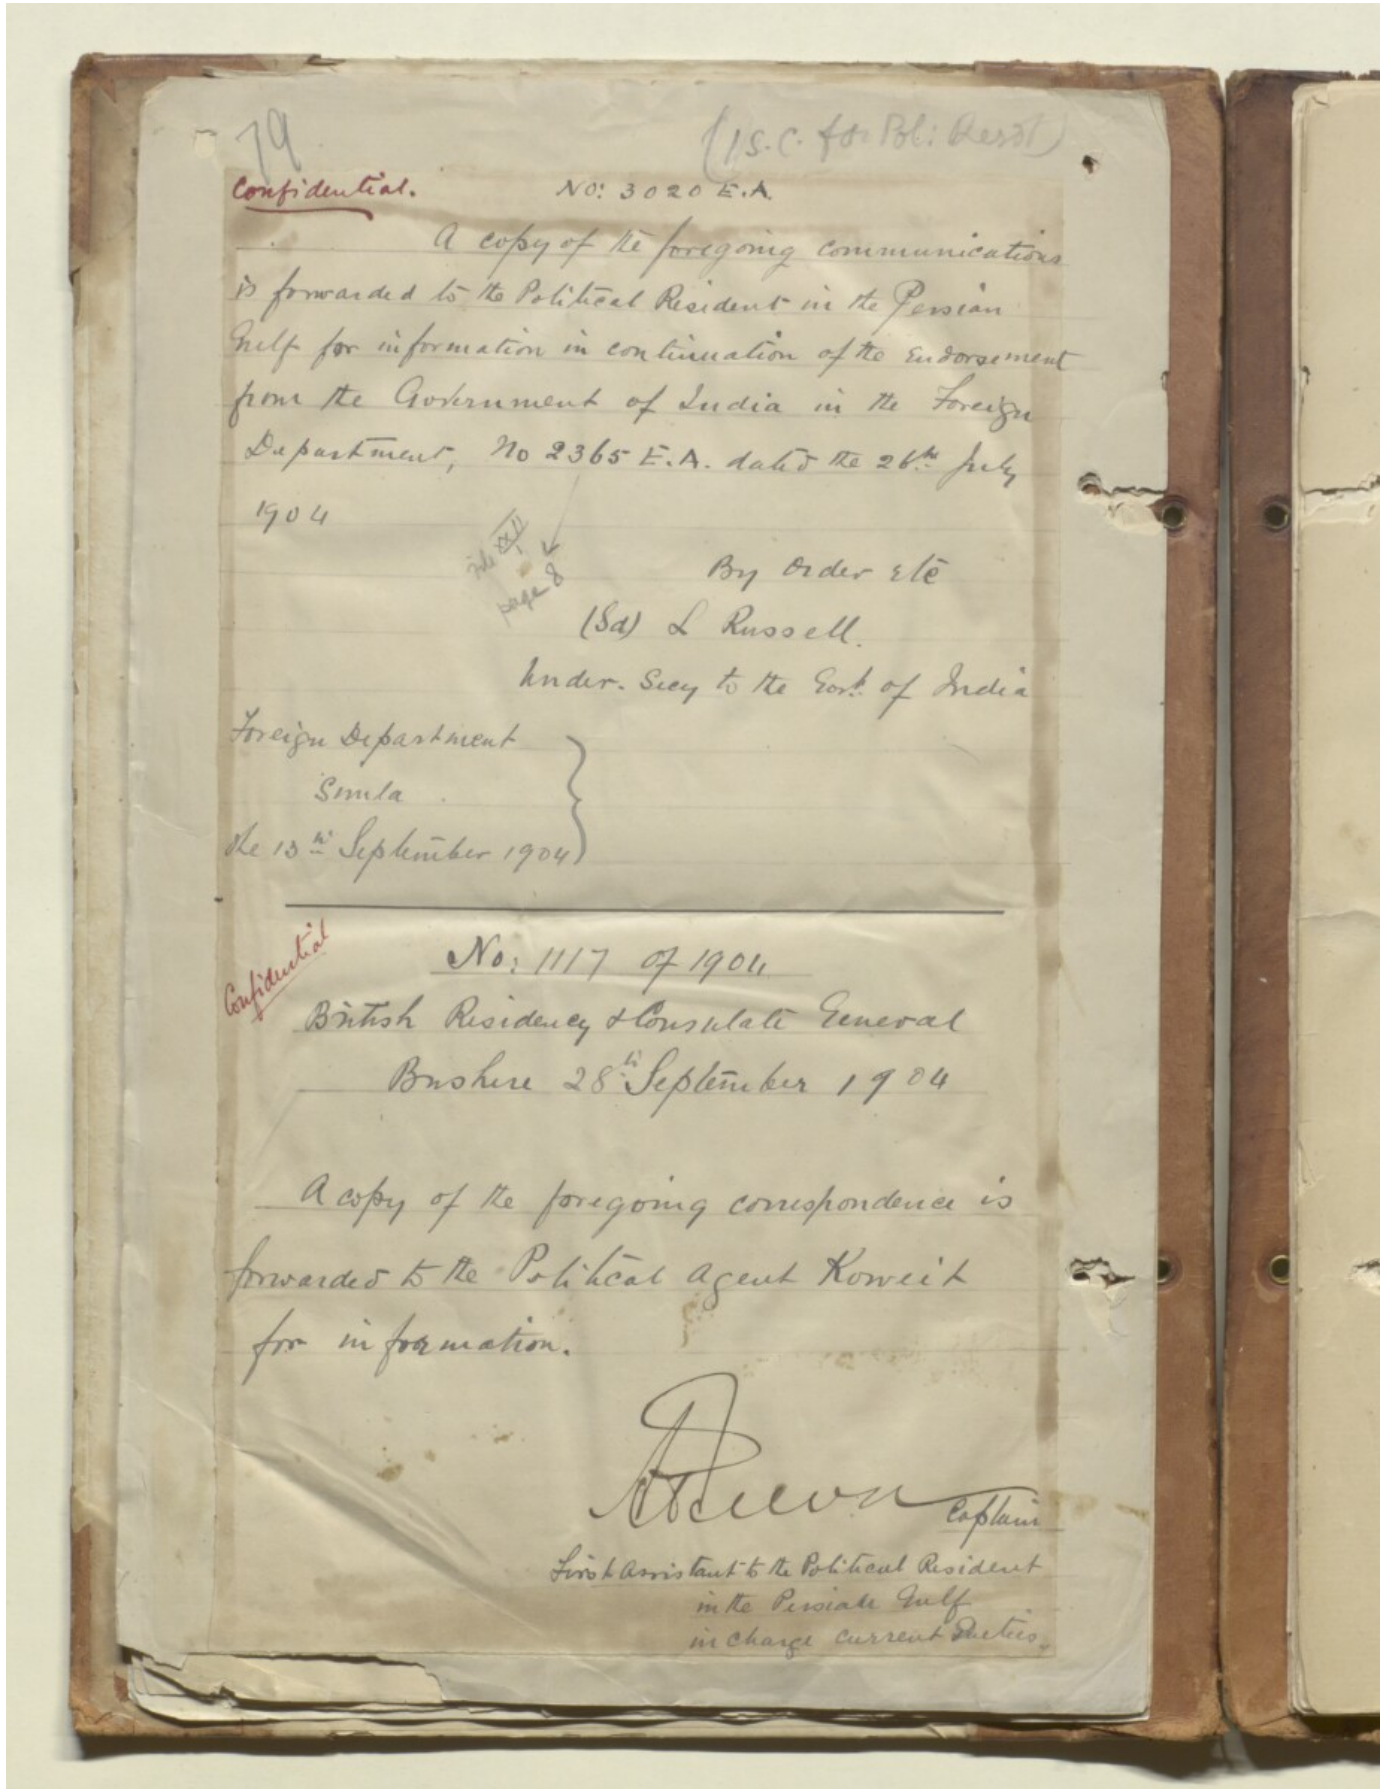 79
(1 S.C. for Pol: Resdt)
Confidential.
No: 3020 E.A.
A copy of the foregoing communications
is forwarded to the Political Resident in the Persian
Gulf for information in continuation of the endorsement
from the Government of India in the Foreign
Department, No 2365 E.A. dated the 26th July
1904
page 8
By order etc
(Sd) L Russell.
Under. Secy to the Govt. of India
Foreign Department
Simla
the 13th September 1904
Confidential
No: 1117 of 1904
British Residency & Consulate General
Bushire 28th September 1904
A copy of the foregoing correspondence is
forwarded to the Political Agent Koweit
for information.
Captain
First Assistant to the Political Resident
in the Persian Gulf
in charge current Duties.